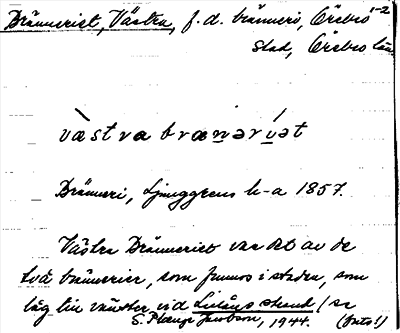 Bränneriet, Västra, f.d. bränneri, Örebro 1-2
stad, Örebro län
væstra brænəriət
Bränneri, Ljunggrens h-a 1857.
Västra Bränneriet var det av de
två brännerier, som funnos i staden, som
låg till väster vid Lillåns strand /se
S. Plange Jacobson, 1944. (foto!)